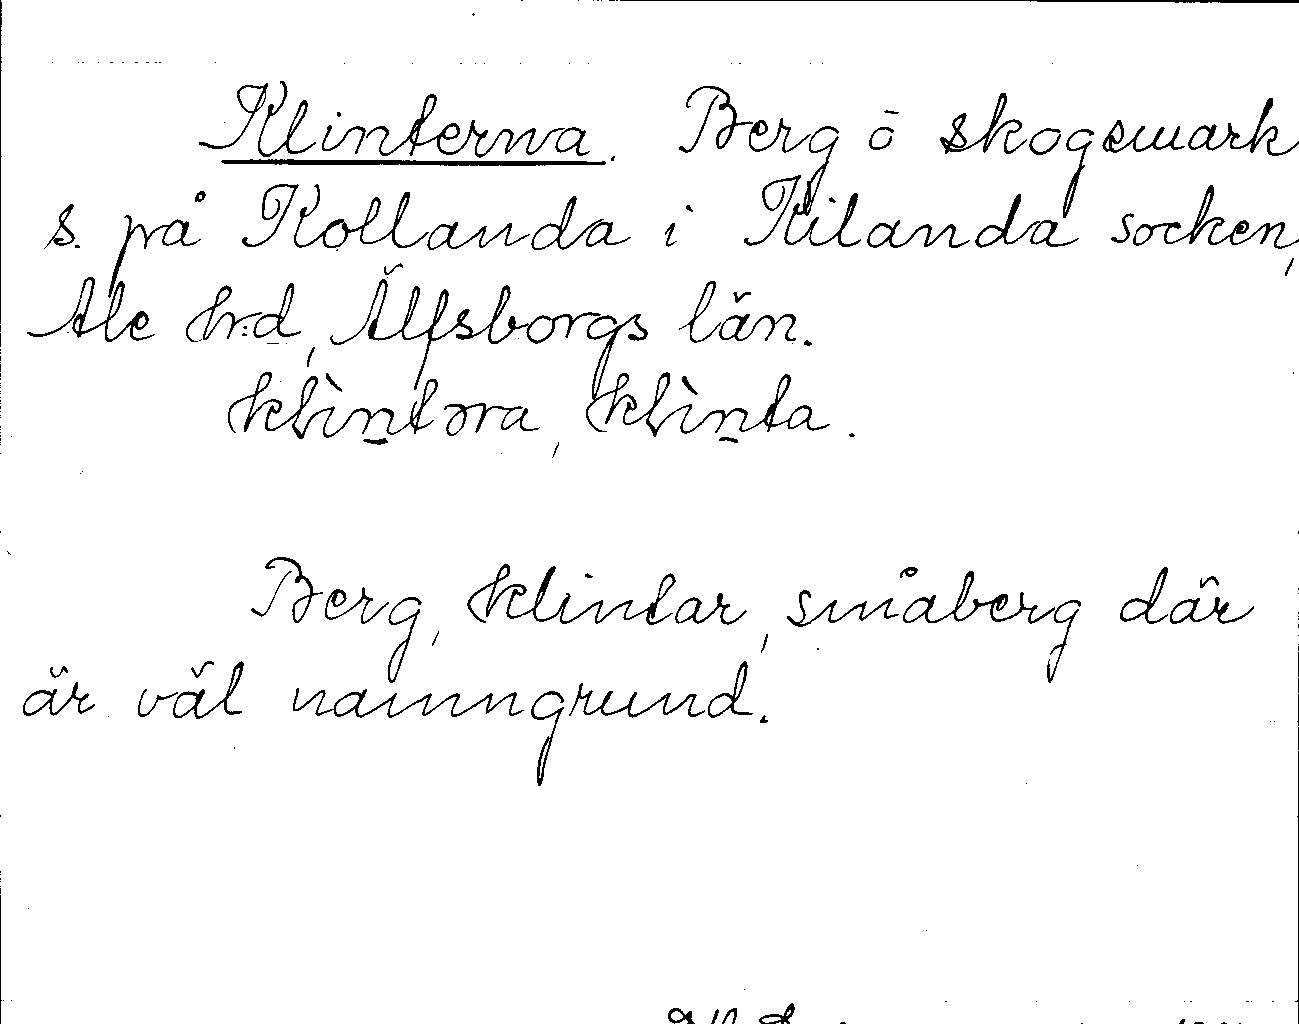 Klinterna. Berg o skogsmark
s. på Kollanda i Kilanda socken,
Ale hrd, Älfsborgs län.
klìntəra, klìnta.
Berg, klintar, småberg där
är väl namngrund.